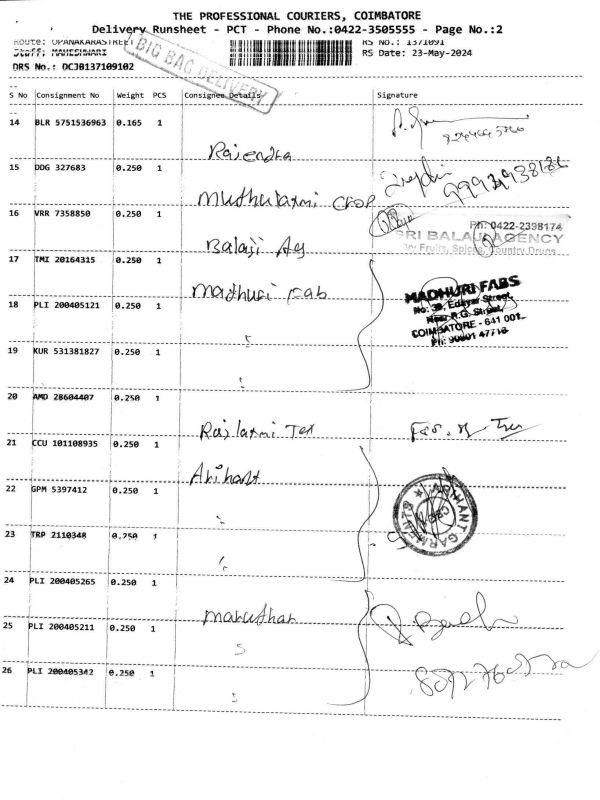 THE PROFESSIONAL COURIERS, COIMBATORE
Delivery Runsheet - PCT - Phone No.:0422-3505555 - Page No.:2
Route: OPANAKARASTREET
RS No.: 1371091
Staff: MAHESHWARI
RS Date: 23-May-2024
DRS No.: DCJB137109102
BIG BAG DELIVERY
S No Consignment No Weight PCS Consignee Details Signature
14 BLR 5751536963 0.165 1 Rajendra
15 DDG 327683 0.250 1 Muthulaxmi
16 VRR 7358850 0.250 1 Balaji Ag
Ph: 0422-2398174
SRI BALAJI AGENCY
Dry Fruits, Spices, Country Drugs
17 TMI 20164315 0.250 1 Madhuri Fab
MADHURI FABS
No: 38, Edayar Street,
Near R.G. Street,
COIMBATORE - 641 001.
Ph: 90801 47718
18 PLI 200405121 0.250 1
19 KUR 531381827 0.250 1
20 AMD 28604407 0.250 1 Rajlaxmi Tex
21 CCU 101108935 0.250 1 Arihant
22 GPM 5397412 0.250 1
ARIHANT GARMENTS
CBE
23 TRP 2110348 0.250 1
24 PLI 200405265 0.250 1 Manuthan
25 PLI 200405211 0.250 1
26 PLI 200405342 0.250 1